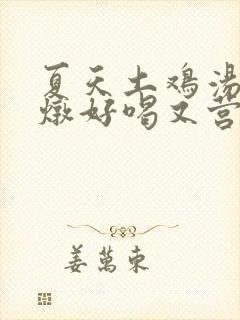 夏天土鸡汤
燉好喝又营
姜萬東